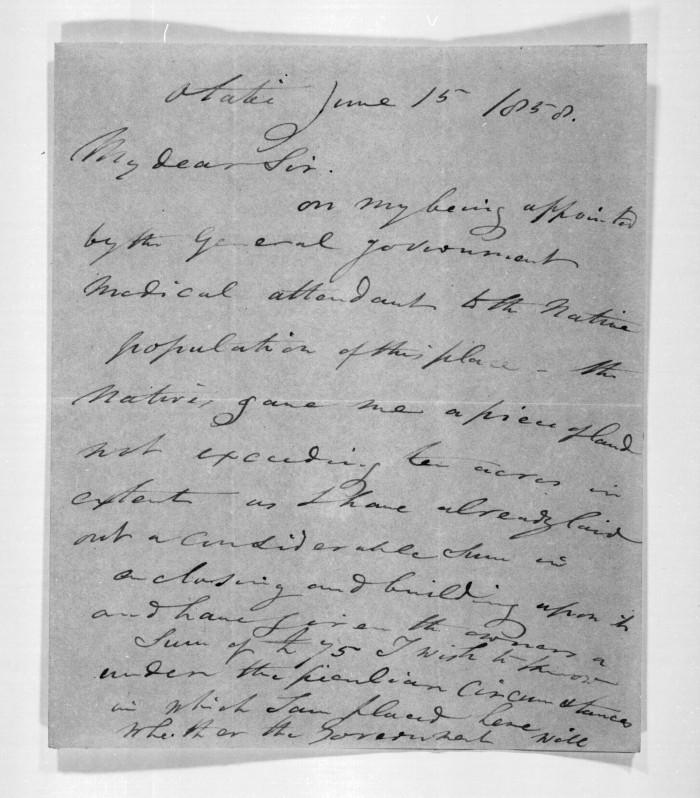 Otaki June 15 1858.
My dear Sir.
on my being appointed
by the General government
Medical attendant to the Native
population of this place - the
Natives gave me a piece of land
not exceeding ten acres in
extent as I have already laid
out a considerable sum in
enclosing and building upon it
and have given the owners a
Sum of £75 I wish to know
under the peculiar circumstances
in which I am placed here will
whether the Government